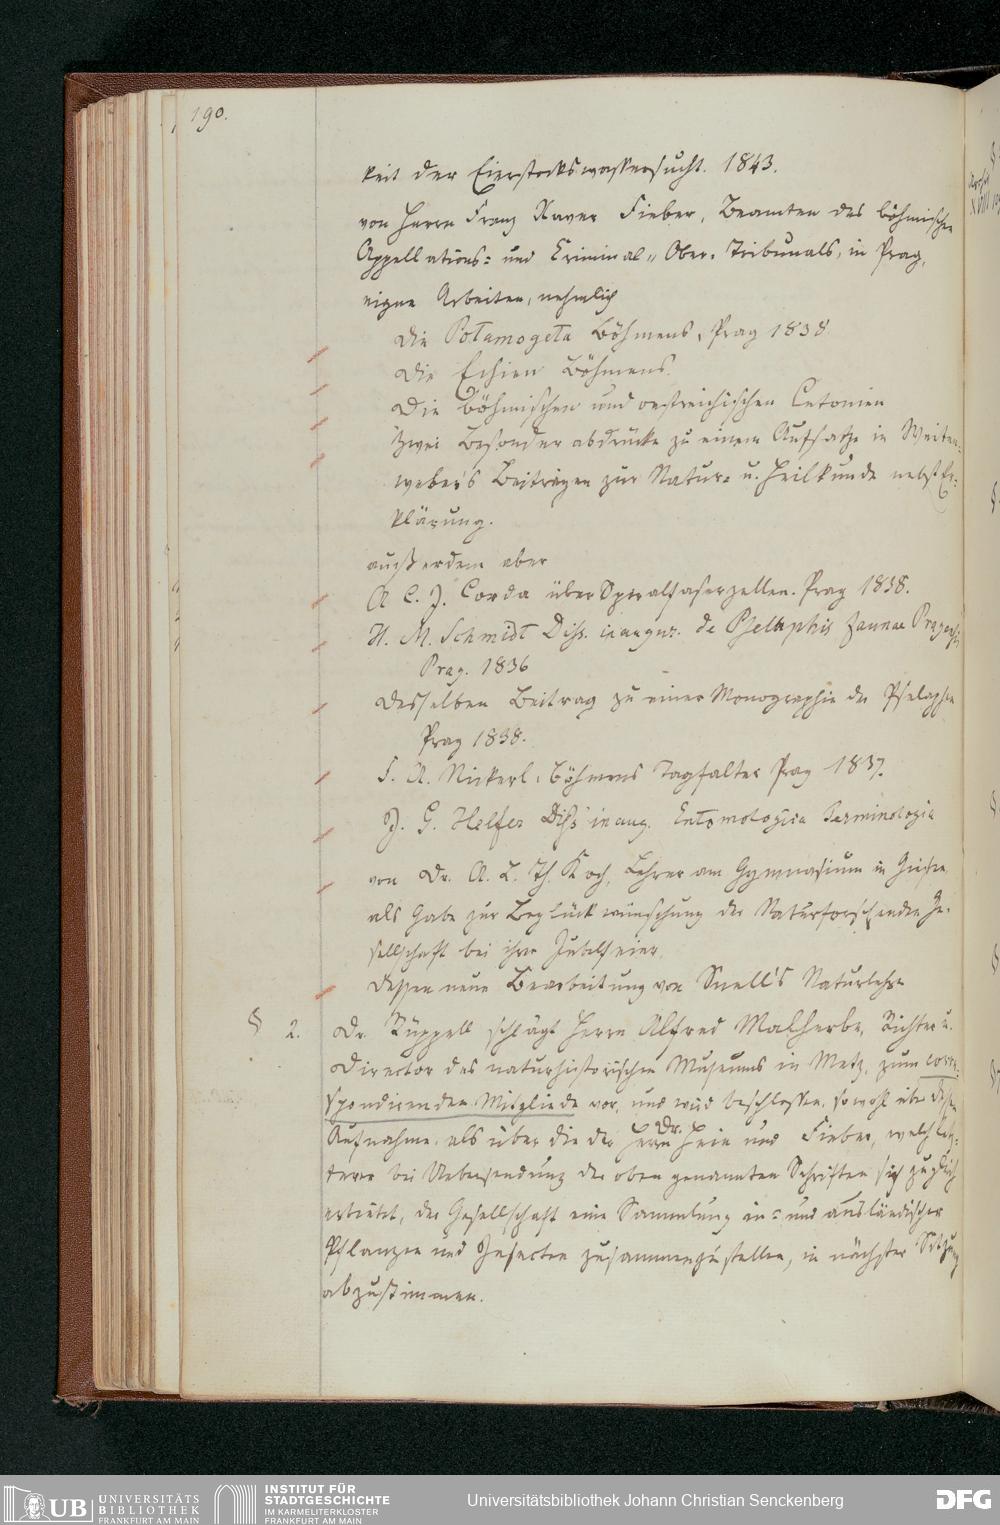 190.
keit der Eierstockswassersucht. 1843.
von Herrn Franz Xaver Fieber, Beamten des böhmischen
Appellations- und Criminal-Ober-Tribunals, in Prag,
eigne Arbeiten, nehmlich
Die Potamogeta Böhmens, Prag 1838.
Die Echien Böhmens.
Die böhmischen und oestreichischen Cetonien
Zwei Besonderabdrücke zu einem Aufsatze in Weiten-
weber's Beiträgen zur Natur- u. Heilkunde nebst Er-
klärung.
außerdem aber
A. C. J. Corda über Spiralfaserzellen. Prag 1838.
H. M. Schmidt Diss. inaugur. de Pselaphis Faunae Pragensis
Prag. 1836
desselben Beitrag zu einer Monographie der Pselaphen
Prag 1838.
F. A. Nickerl, Böhmens Tagfalter Prag 1837.
J. G. Helfer Diss. inaug. Entomologica Terminologia
von Dr. A. L. Th. Koch, Lehrer am Gymnasium in Giesen
als Gabe zur Beglückwünschung der Naturforschenden Ge-
sellschaft bei ihrer Jubelfeier,
dessen neue Bearbeitung von Snell's Naturlehre
§ 2. Dr. Rüppell schlägt Herrn Alfred Malherbe, Richter u.
Director des naturhistorischen Museums in Metz, zum corre-
spondirenden Mitgliede vor, und wird beschlossen, sowohl über dessen
Aufnahme, als über die der Herrn Dr. Hein und Fieber, welch letz-
terer bei Uebersendung der oben genannten Schriften sich zugleich
erbietet, der Gesellschaft eine Sammlung in- und ausländischer
Pflanzen und Insecten zusammenzustellen, in nächster Sitzung
abzustimmen.
UB UNIVERSITÄTS
BIBLIOTHEK
FRANKFURT AM MAIN
INSTITUT FÜR
STADTGESCHICHTE
IM KARMELITERKLOSTER
FRANKFURT AM MAIN
Universitätsbibliothek Johann Christian Senckenberg
DFG